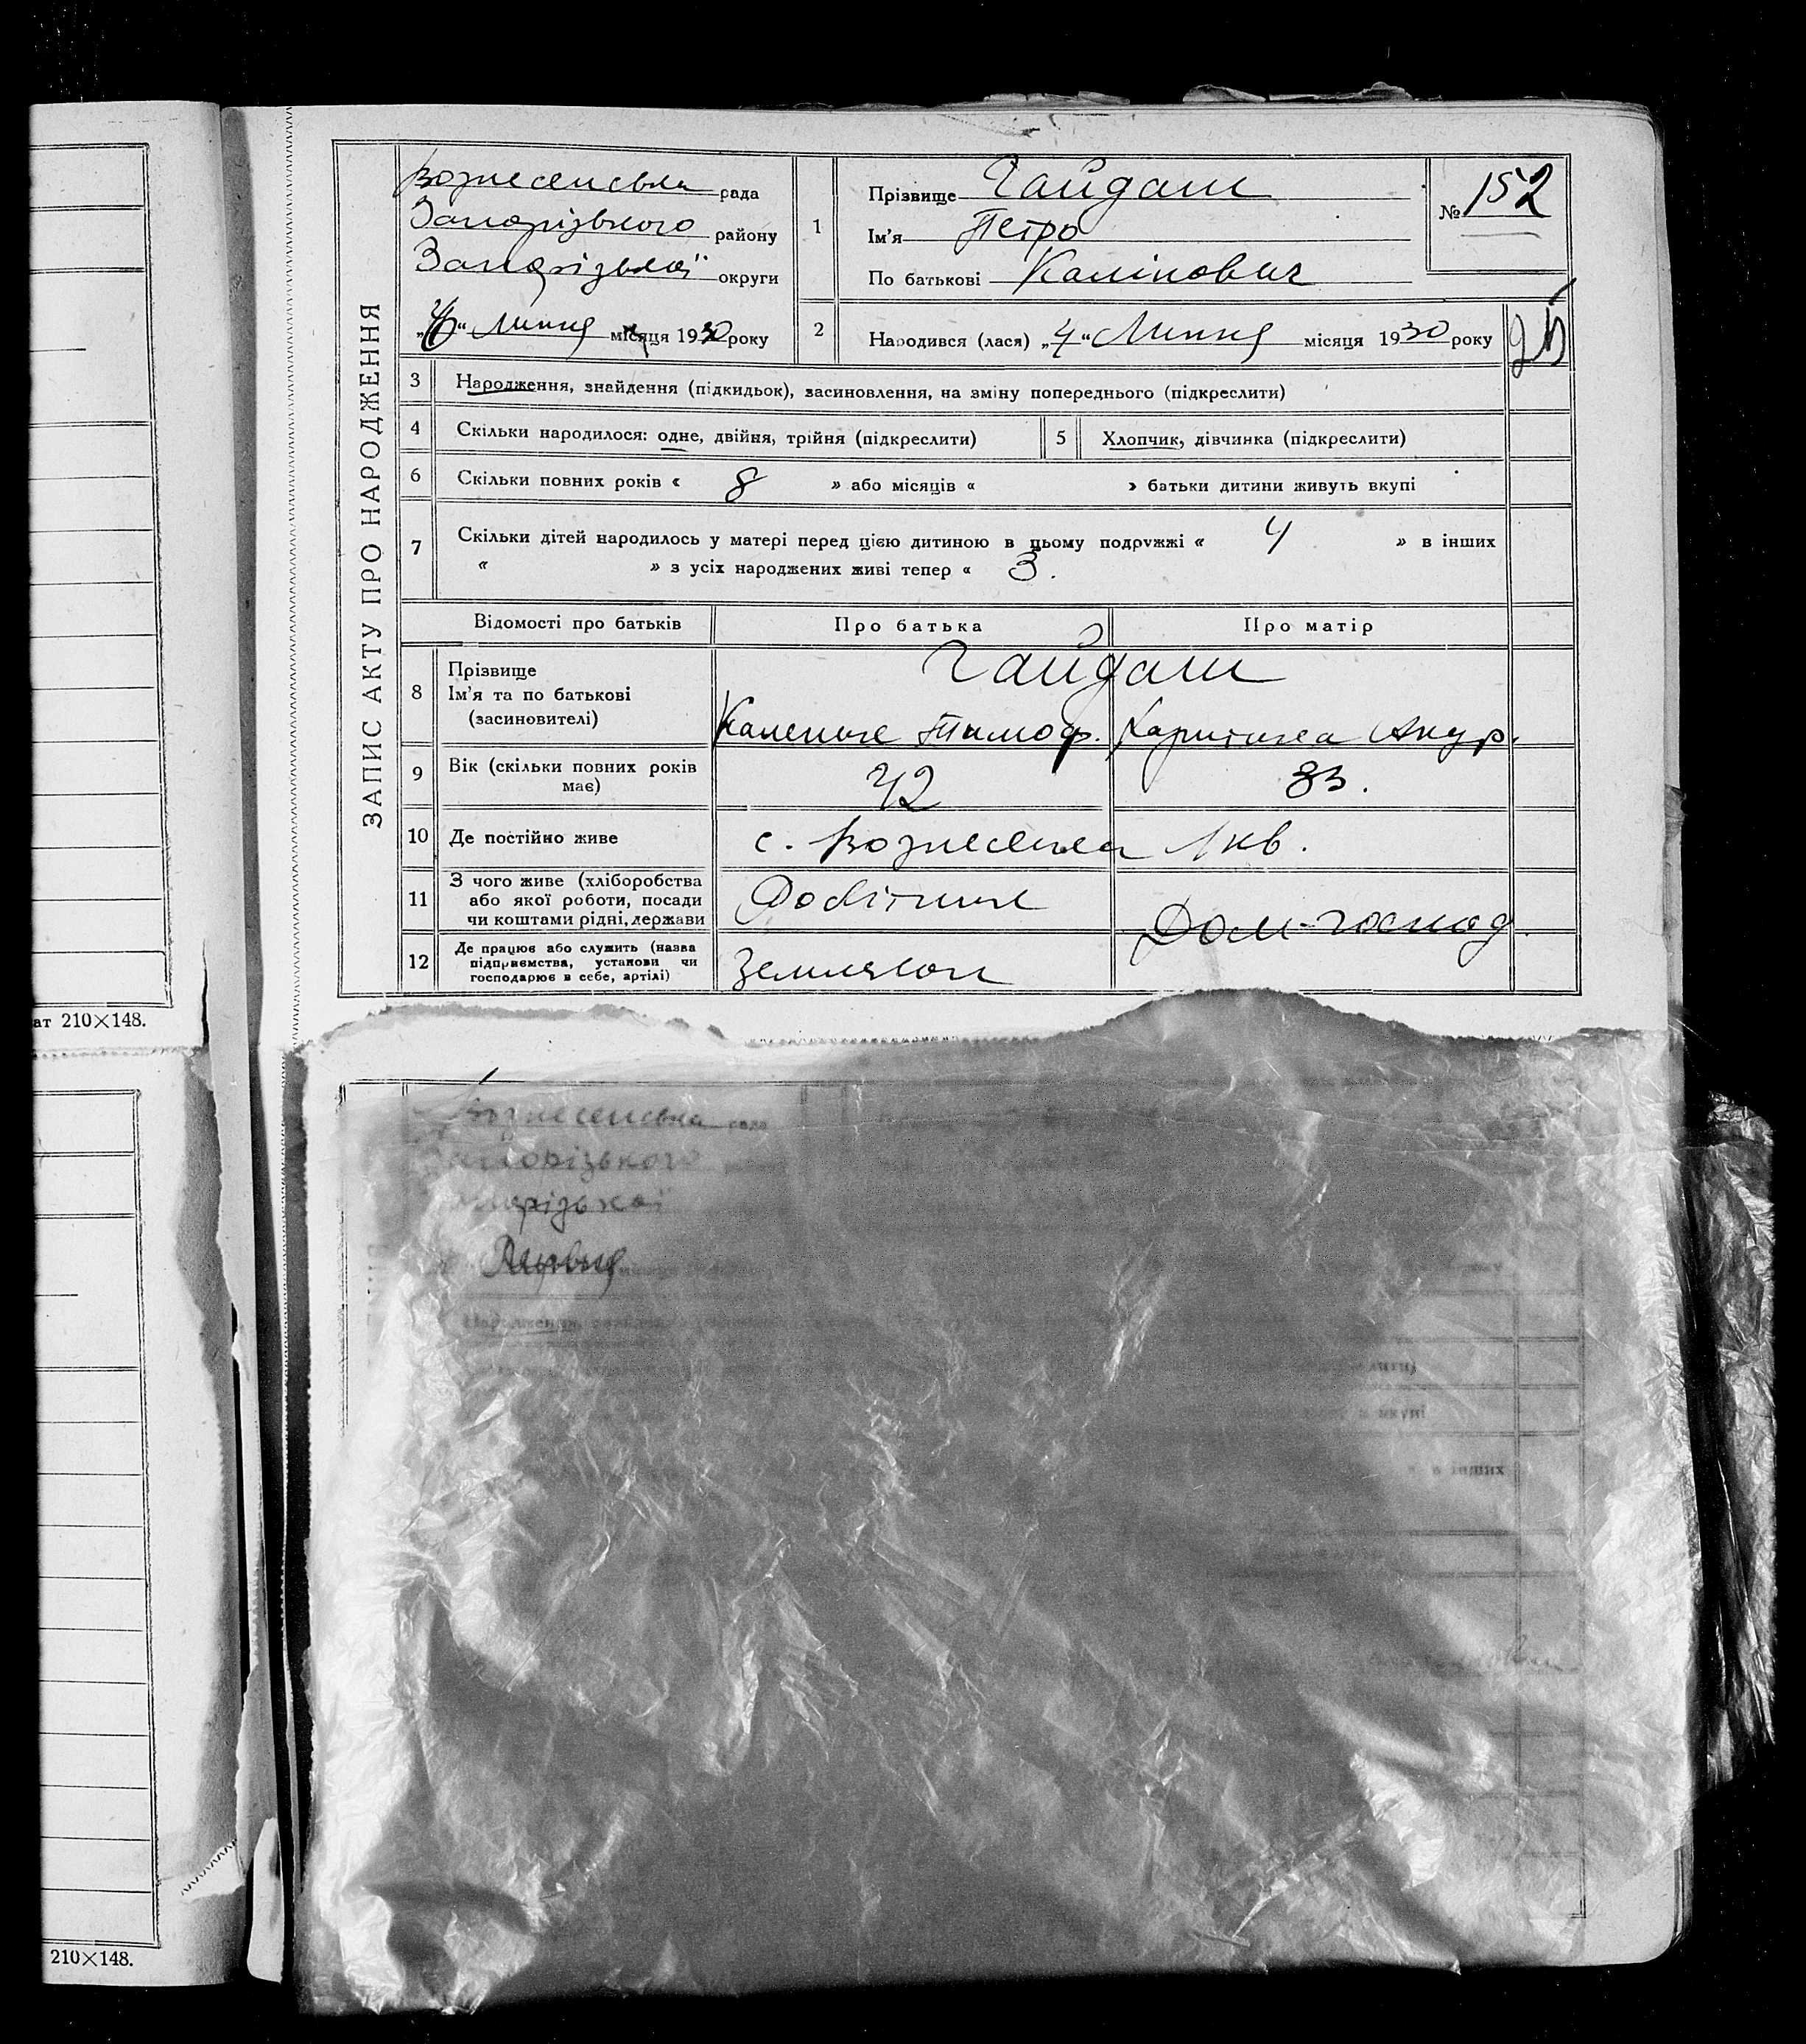 ат 210×148.
210×148.
ЗАПИС АКТУ ПРО НАРОДЖЕННЯ
Вознесенська рада
Запорізького району
Запорізької округи
Липня місяця 1930 року
1
Прізвище Гайдаш
Ім'я Петро
По батькові Калінович
№ 152
2
Народився (лася) „4“ Липня місяця 1930 року
3 Народження, знайдення (підкидьок), засиновлення, на зміну попереднього (підкреслити)
4 Скільки народилося: одне, двійня, трійня (підкреслити)
5 Хлопчик, дівчинка (підкреслити)
6 Скільки повних років « 8 » або місяців « » батьки дитини живуть вкупі
7 Скільки дітей народилось у матері перед цією дитиною в цьому подружжі « 4 » в інших
« » з усіх народжених живі тепер « 3.
Відомості про батьків Про батька Про матір
8 Прізвище
Ім'я та по батькові
(засиновителі)
Гайдаш
Тимоф.
9 Вік (скільки повних років
має)
42 33.
10 Де постійно живе с. Вознесенка 1 кв.
11 З чого живе (хліборобства
або якої роботи, посади
чи коштами рідні, держави
Робітник
Дом-господ.
12 Де працює або служить (назва
підприємства, установи чи
господарює в себе, артілі)
Землякоп
Вознесенська рада
Запорізького
Народження,
інших